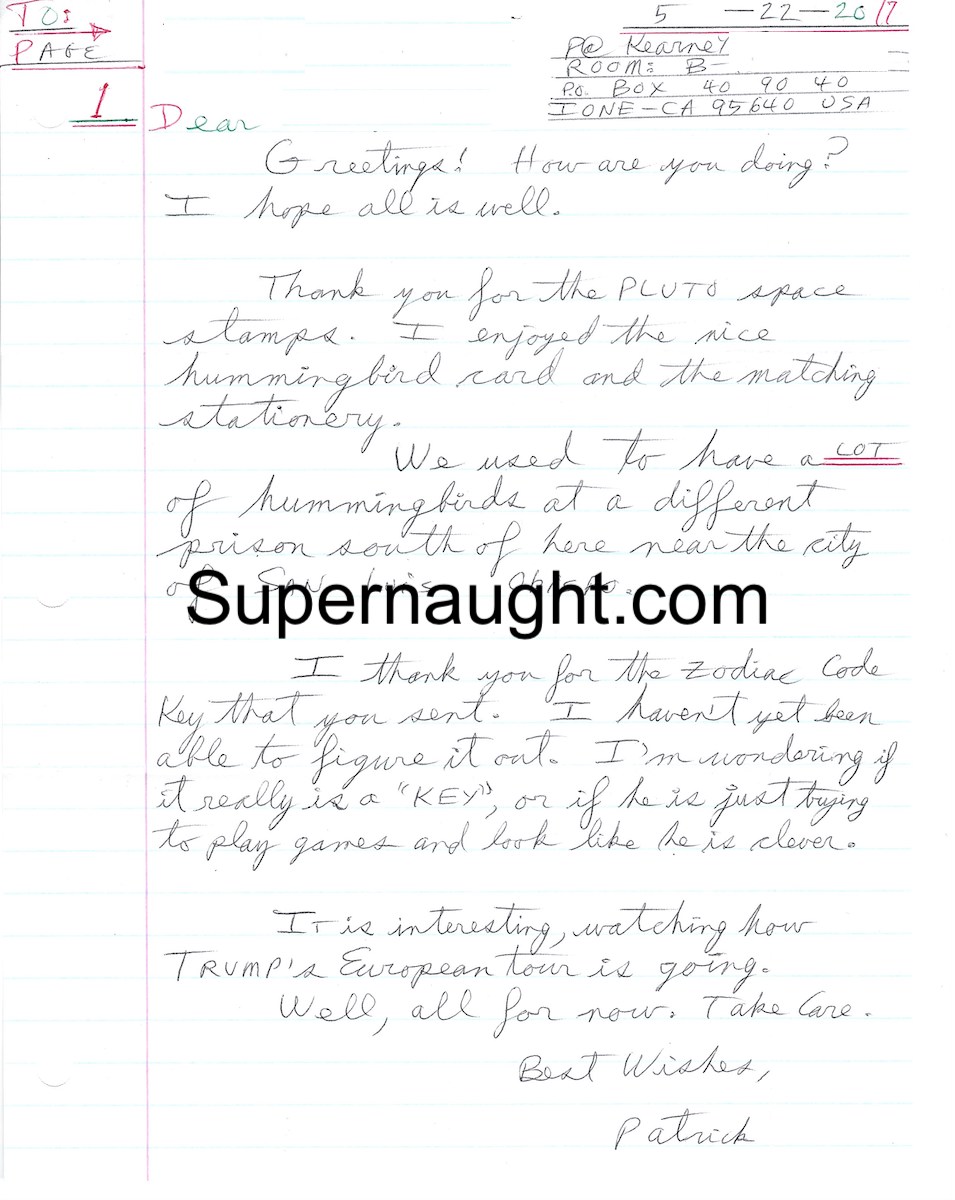 TO:
PAGE
1
5 - 22 - 2017
P@ Kearney
ROOM: B-
P.O. BOX 40 90 40
IONE - CA 95640 USA
Dear
Greetings! How are you doing?
I hope all is well.
Thank you for the PLUTO space
stamps. I enjoyed the nice
hummingbird card and the matching
stationery.
We used to have a LOT
of hummingbirds at a different
prison south of here near the city
of San Luis Obispo.
Supernaught.com
I thank you for the Zodiac Code
Key that you sent. I haven't yet been
able to figure it out. I'm wondering if
it really is a "KEY", or if he is just trying
to play games and look like he is clever.
It is interesting, watching how
TRUMP's European tour is going.
Well, all for now. Take Care.
Best Wishes,
Patrick